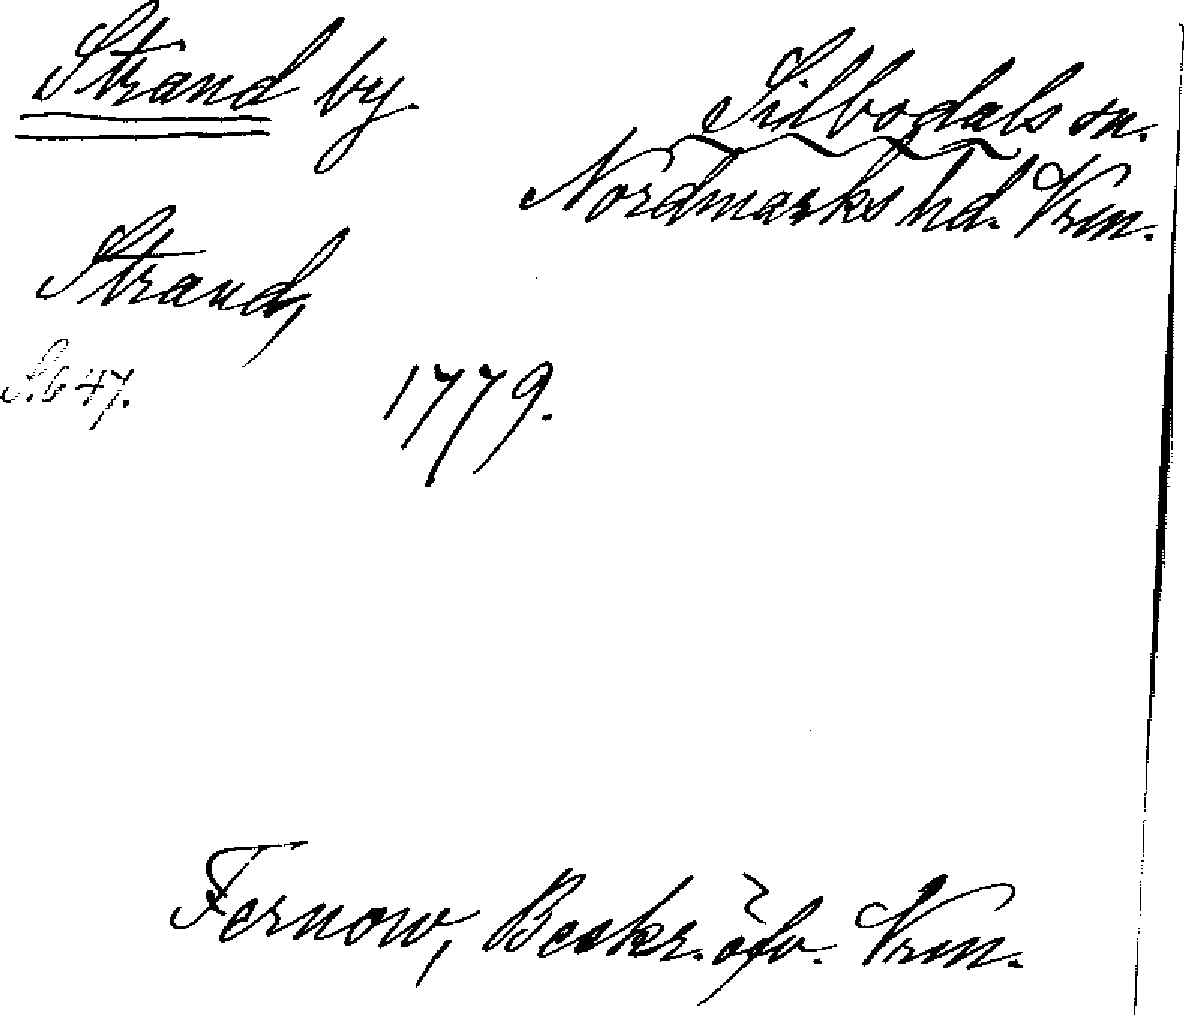 Strand by.
Silbodals sn.
Nordmarks hd. Vrm.
Strand,
S. 647.
1779.
Fernow, Beskr. öfv. Vrm.